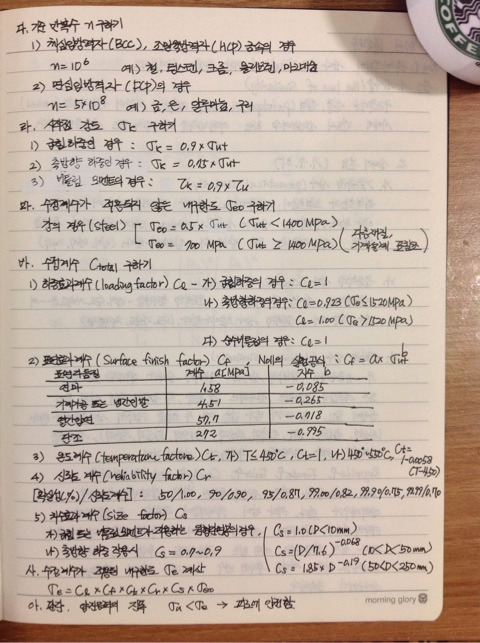 다. 기준 반복수 n 구하기
1) 체심입방격자 (BCC), 조밀육방격자 (HCP) 금속의 경우
n = 10⁶ 예) 철, 텅스텐, 크롬, 몰리브덴, 마그네슘
2) 면심입방격자 (FCP)의 경우
n = 5×10⁸ 예) 금, 은, 알루미늄, 구리
라. 시작점 강도 σK 구하기
1) 굽힘하중인 경우 : σK = 0.9×σut
2) 축방향 하중인 경우 : σK = 0.75×σut
3) 비틀림 모멘트의 경우 : τK = 0.9×τu
마. 수정계수가 적용되지 않은 내구한도 σeo 구하기
강의 경우 (steel) σeo = 0.5×σut (σut < 1400 MPa)
σeo = 700 MPa (σut ≥ 1400 MPa)
바. 수정계수 Ctotal 구하기
1) 하중효과계수 (loading factor) Cℓ - 가) 굽힘하중의 경우 : Cℓ = 1
나) 축방향하중의 경우 : Cℓ = 0.923 (σu ≤ 1520 MPa)
Cℓ = 1.00 (σu > 1520 MPa)
다) 순수비틀림의 경우 : Cℓ = 1
2) 표면효과계수 (Surface finish factor) Cf, Noll의 실험공식 : Cf = a×σut^b
표면다듬질 계수 a[MPa] 지수 b
연마 1.58 -0.085
기계가공 또는 냉간인발 4.51 -0.265
열간압연 57.7 -0.718
단조 272 -0.995
3) 온도계수 (temperature factore) Ct, 가) T≤450℃, Ct=1, 나) 450~550℃, Ct= 1-0.0058 (T-450)
4) 신뢰도 계수 (reliability factor) Cr
[확률(%) / 신뢰도계수] : 50/1.00, 90/0.90, 95/0.87, 99.00/0.82, 99.90/0.75, 99.99/0.70
5) 치수효과계수 (size factor) Cs
가) 굽힘 또는 비틀림 모멘트가 작용하는 원형단면의 경우, Cs = 1.0 (D<10mm)
나) 축방향 하중 작용시 Cs = 0.7~0.9 Cs = (D/7.6)^-0.068 (10<D<50mm)
Cs = 1.85×D^-0.19 (50<D<250mm)
사. 수정계수가 적용된 내구한도 σe 계산
σe = Cℓ × Cf × Ct × Cr × Cs × σeo
σa < σe → 피로에 안전함
morning glory
COFFEE